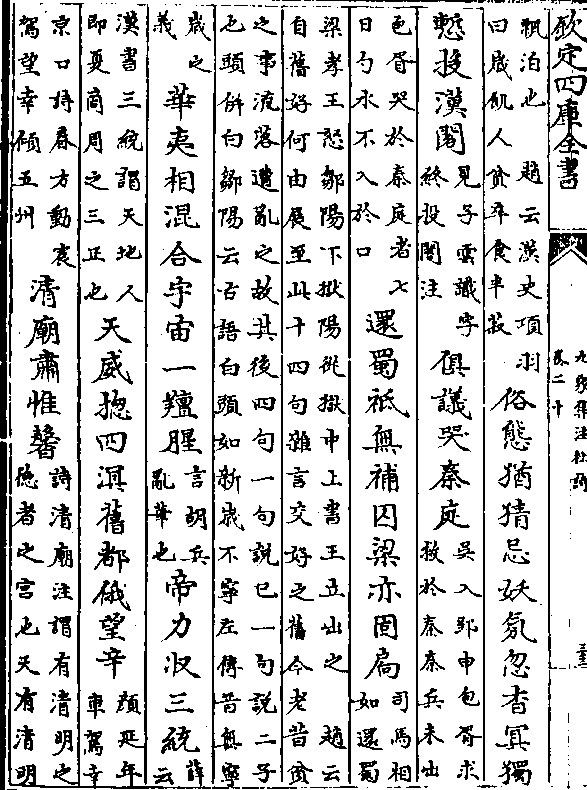 欽定四庫全書
九家集注杜詩
卷二十
飄泊也 趙云漢史項羽
曰歲飢人貧卒食半菽
俗態猶猜忌妖氛忽杳冥獨
慙投漢閣
見子雲識字
終投閣注
俱議哭秦庭
吳入郢申包胥求
救於秦秦兵未出
包胥哭於秦庭者七
日勺水不入於口
還蜀秪無補囚梁亦固扃
司馬相
如還蜀
梁孝王怒鄒陽下獄陽從獄中上書王立出之 趙云
自舊好何由展至此十四句雜言交好之舊今老昔貧
之事流落遭亂之故其後四句一句說已一句說二子
也頭併白鄒陽云古語白頭如新歲不寧左傳昔無寧
歲之
義
華夷相混合宇宙一羶腥
言胡兵
亂華也
帝力收三統
薛
云
漢書三統謂天地人
即夏商周之三正也
天威揔四溟舊都俄望幸
顔延年
車駕幸
京口詩春方動宸
駕望幸傾五州
清廟肅惟馨
詩清廟注謂有清明之
德者之宮也天有清明